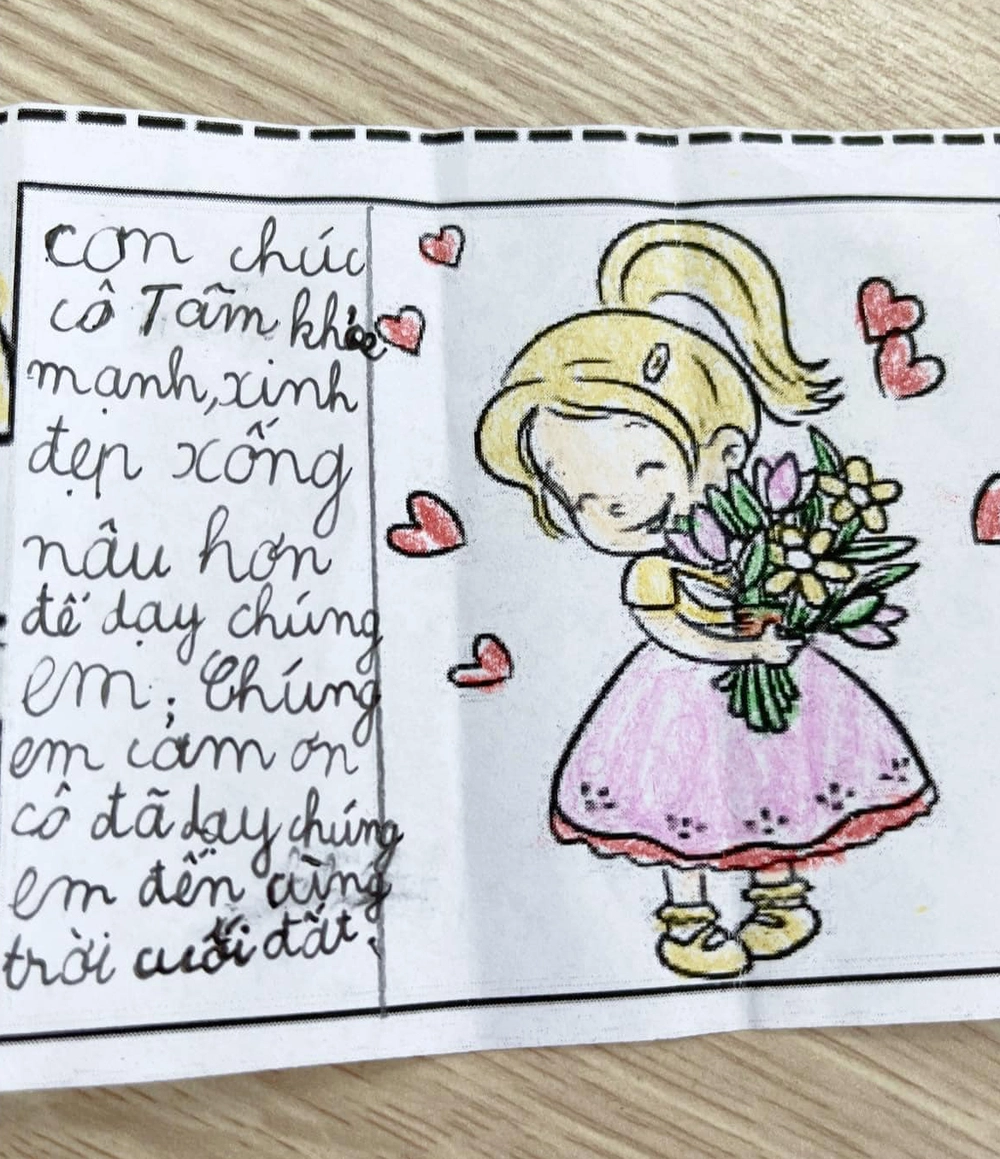 con chúc
cô Tâm khỏe
mạnh, xinh
đẹp xống
nâu hơn
để dạy chúng
em; Chúng
em cảm ơn
cô đã dạy chúng
em đến cùng
trời cuối đất.